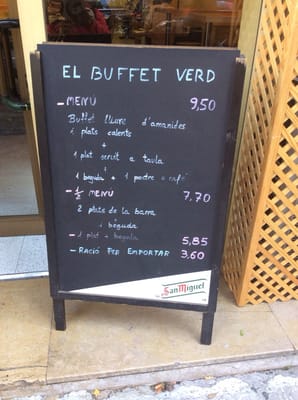 EL BUFFET VERD
- MENÚ 9,50
Buffet lliure d'amanides
i plats calents
+
1 plat servit a taula
+
1 beguda + 1 postre o café
- ½ MENÚ 7,70
2 plats de la barra
i beguda
- 1 plat + beguda 5,85
- RACIÓ PER EMPORTAR 3,60
San Miguel